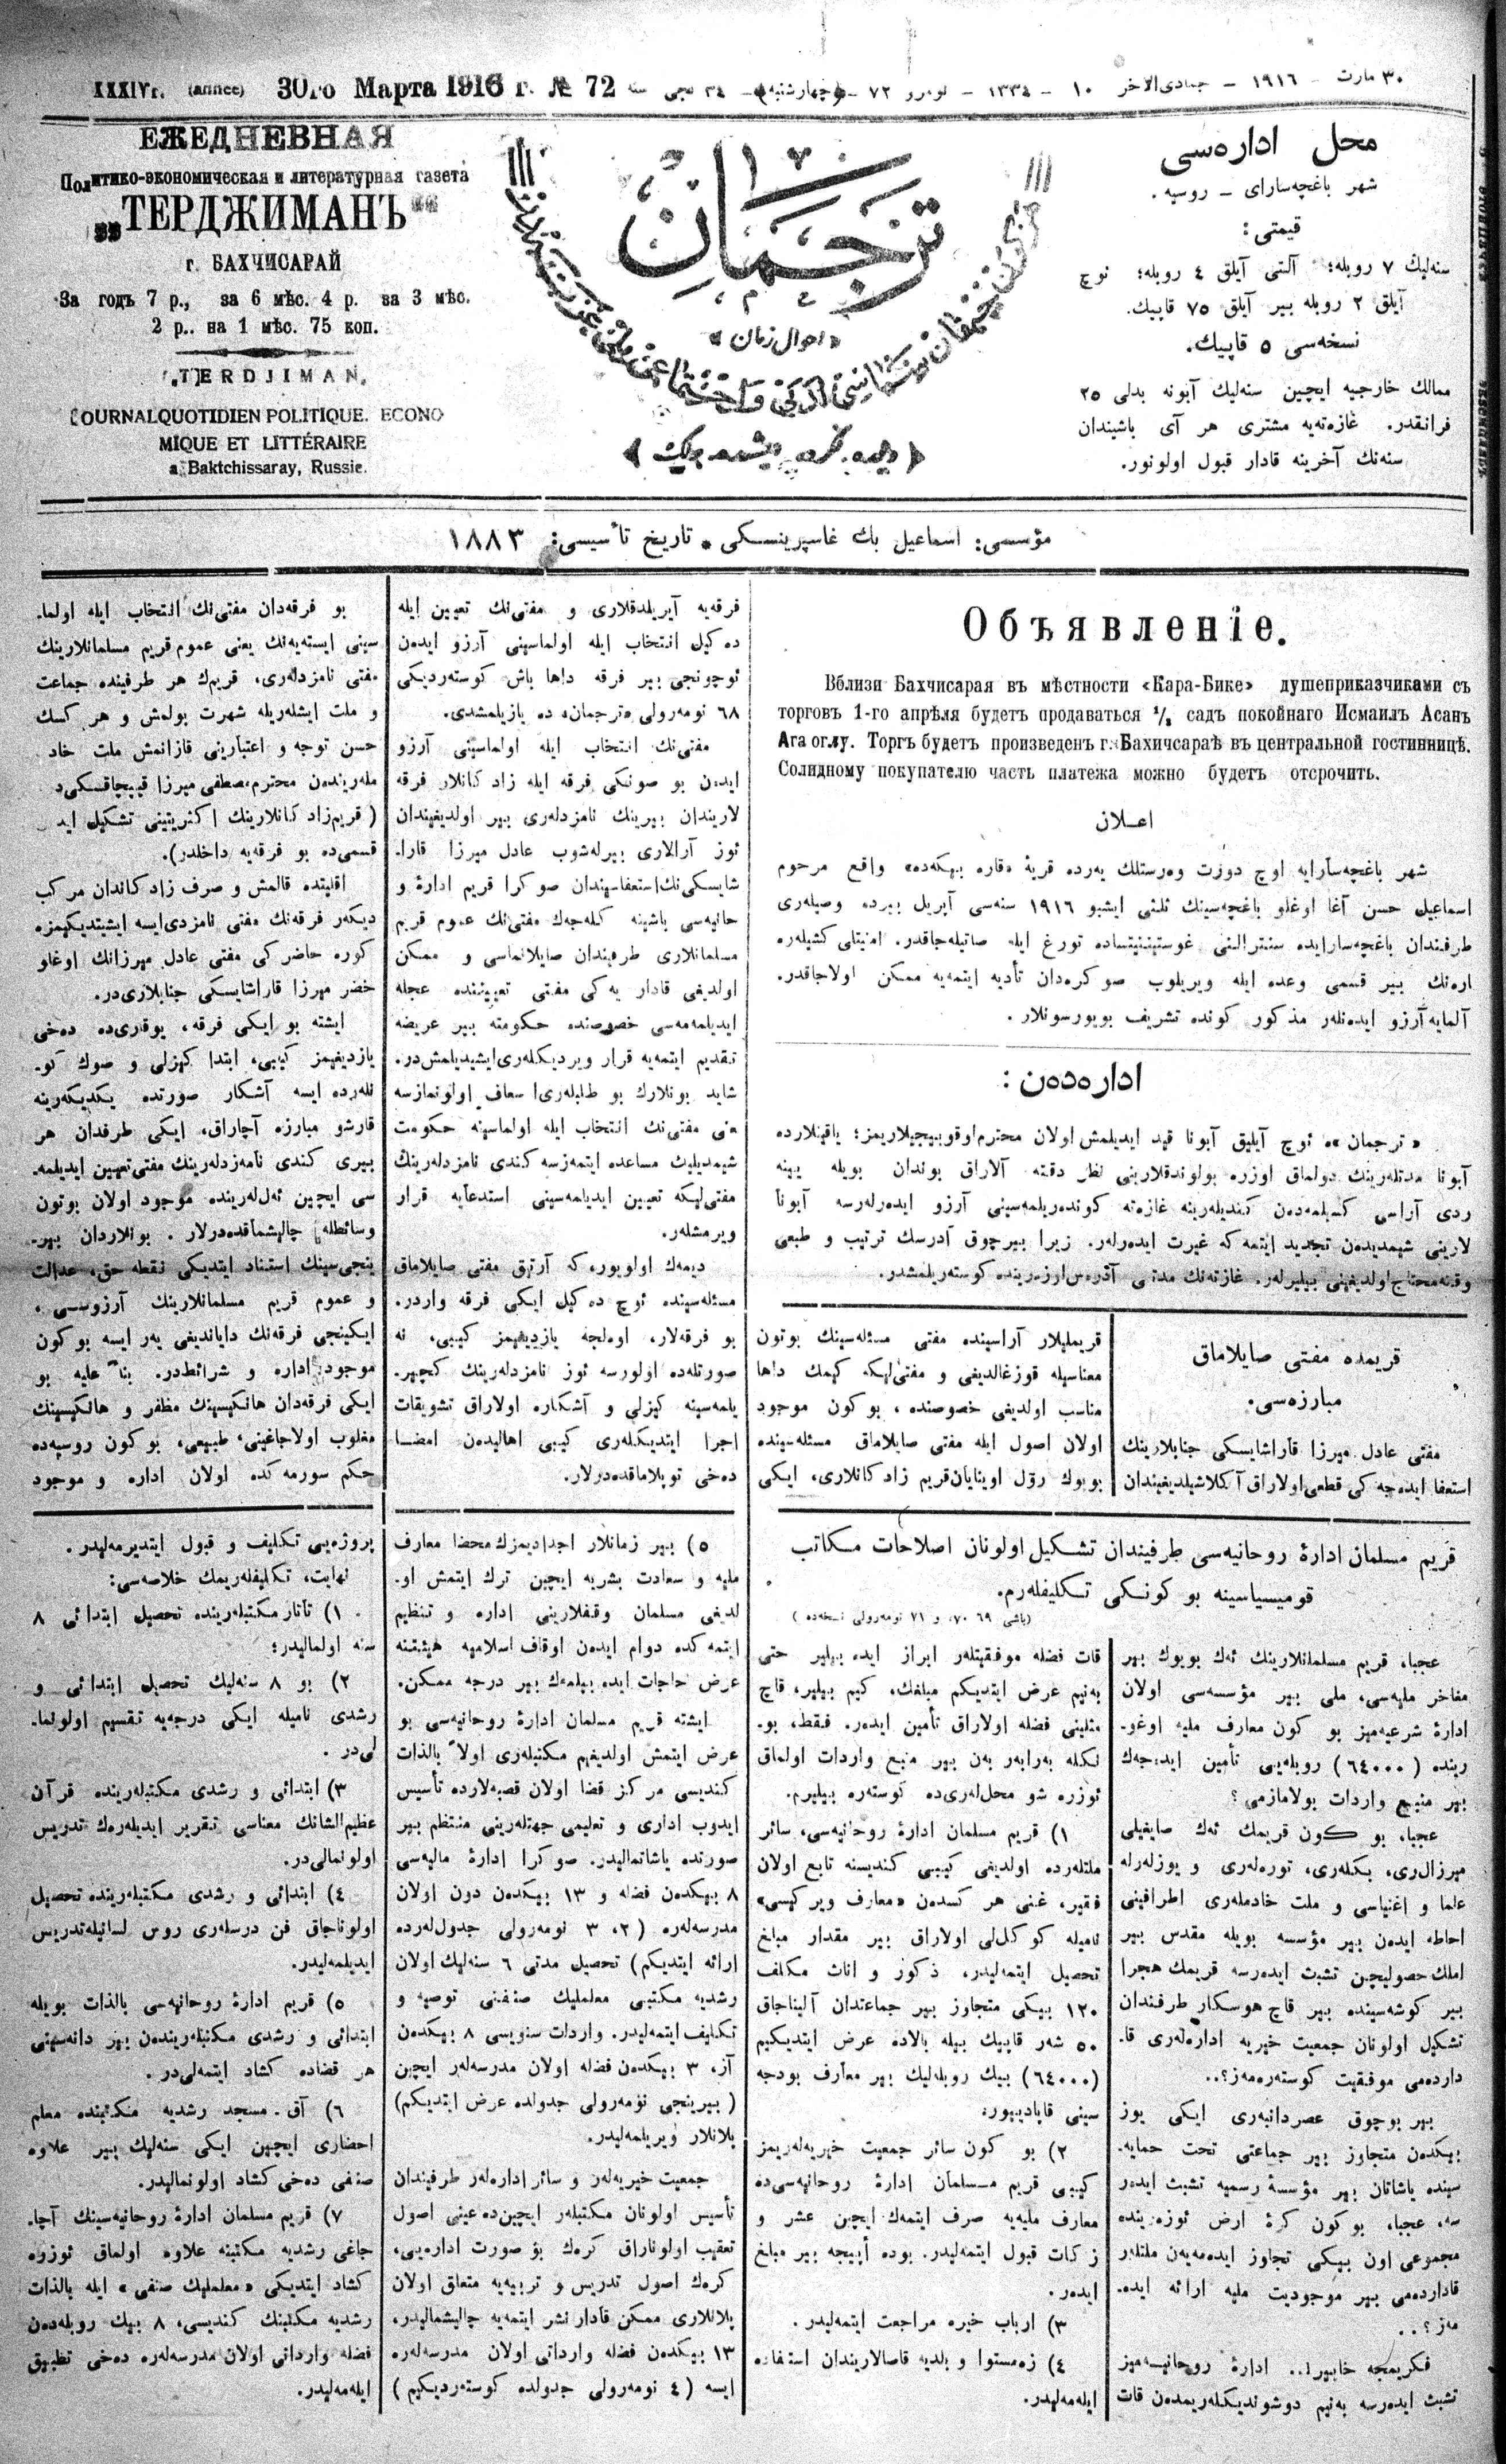 XXXIVг. (année) 30го Марта 1916 г. № 72
٣٠ مارت – ١٩١٦ – جمادی‌الاخر ١٠ – ١٣٣٤ – نومرو ٧٢ –(چهارشنبه)– ٣٤ نجی سنه
ЕЖЕДНЕВНАЯ
Политико-экономическая и литературная газета
„ТЕРДЖИМАНЪ“
г. БАХЧИСАРАЙ
За годъ 7 р., за 6 мѣс. 4 р. за 3 мѣс.
2 р.. на 1 мѣс. 75 коп.
„TERDJIMAN„
JOURNALQUOTIDIEN POLITIQUE. ECONO
MIQUE ET LITTÉRAIRE
a Baktchissaray, Russie.
ترجمان
«احوال زمان»
محل اداره‌سی
شهر باغچه‌سارای – روسیه.
قیمتی:
سنه‌لیك ٧ روبله؛ آلتی آیلق ٤ روبله؛ ئوچ
آیلق ٢ روبله بیر آیلق ٧٥ قاپیك.
نسخه‌سی ٥ قاپیك.
ممالك خارجیه ایچین سنه‌لیك آبونه بدلی ٢٥
فرانقدر. غازه‌ته‌یه مشتری هر آی باشیندان
سنه‌نك آخرینه قادار قبول اولونور.
مؤسسی: اسماعیل بك غاسپرینسكی • تاریخ تأسیسی: ١٨٨٣
Объявленіе.
Вблизи Бахчисарая въ мѣстности «Кара-Бике» душеприказчиками съ
торговъ 1-го апрѣля будетъ продаваться садъ покойнаго Исмаилъ Асанъ
Ага оглу. Торгъ будетъ произведенъ г. Бахичсараѣ въ центральной гостинницѣ.
Солидному покупателю часть платежа можно будетъ отсрочить.
اعلان
شهر باغچه‌سارایه اوچ دورت وه‌رستلك یه‌رده قریهٔ «قاره بیكه‌ده» واقع مرحوم
اسماعیل حسن آغا اوغلو باغچه‌سینك ثلثی ایشبو ١٩١٦ سنه‌سی آپریل بیرده وصیله‌ری
طرفندان باغچه‌سارایده سنترالنی غوستیننیتساده تورغ ایله صاتیله‌جاقدر. امنیتلی كشیله‌ره
اره‌نك بیر قسمی وعده ایله ویریلوب صوكره‌دان تأدیه ایتمه‌یه ممكن اولاجاقدر.
آلمایه آرزو ایده‌نله‌ر مذكور كونده تشریف بویورسونلار.
اداره‌ده‌ن:
«ترجمان»ه ئوچ آیلیق آبونا قید ایدیلمش اولان محترم اوقوییجیلاریمز؛ یاقینلارده
آبونا مدتله‌رینك دولماق اوزره بولوندقلارینی نظر دقته آلاراق بوندان بویله یینه
ردی آراسی كسیلمه‌ده‌ن كندیله‌رینه غازه‌ته كونده‌ریلمه‌سینی آرزو ایده‌رله‌رسه آبونا
لارینی شیمدیده‌ن تجدید ایتمه كه غیرت ایده‌رله‌ر. زیرا بیرچوق آدرسك ترتیب و طبعی
وقته محتاج اولدیغینی بیلیرله‌ر. غازته‌نك مدتی آدره‌س اوزه‌رینده كوسته‌ریلمشدر.
قریمده مفتی صایلاماق
مبارزه‌سی.
مفتی عادل میرزا قاراشایسكی جنابلارینك
استعفا ایده‌جه كی قطعی اولاراق آكلاشیلدیغیندان
قریملیلار آراسینده مفتی مسئله‌سینك بوتون
معناسیله قوزغالدیغی و مفتی‌لیكه كیمك داها
مناسب اولدیغی خصوصنده، بو كون موجود
اولان اصول ایله مفتی صایلاماق مسئله‌سینده
بویوك رول اوینایان قریم زادكانلاری، ایكی
فرقه‌یه آیریلدقلاری و مفتی‌نك تعیین ایله
ده‌كیل انتخاب ایله اولماسینی آرزو ایده‌ن
ئوچونجی بیر فرقه داها باش كوسته‌ردیكی
٦٨ نومه‌رولی «ترجمان»ده یازیلمشدی.
مفتی‌نك انتخاب ایله اولماسینی آرزو
ایده‌ن بو صونكی فرقه ایله زادكانلار فرقه
لاریندان بیرینك نامزدله‌ری بیر اولدیغیندان
ئوز آرالاری بیرله‌شوب عادل میرزا قارا‌-
شایسكی‌نك استعفاسیندان صوكرا قریم ادارهٔ رو
حانیه‌سی باشینه كله‌جه‌ك مفتی‌نك عموم قریم
مسلمانلاری طرفیندان صایلانماسی و ممكن
اولدیغی قادار یه‌كی مفتی تعییننده عجله
ایدیلمه‌مه‌سی خصوصنده حكومته بیر عریضه
تقدیم ایتمه‌یه قرار ویردیكله‌ری ایشیدیلمش‌در.
شاید بونلارك بو طلبله‌ری اسعاف اولونمازسه
یعنی مفتی‌نك انتخاب ایله اولماسینه حكومت
شیمدیلیك مساعده ایتمه‌زسه كندی نامزدله‌رینك
مفتی‌لیكه تعیین ایدیلمه‌سینی استدعایه قرار
ویرمشله‌ر.
دیمه‌ك اولویور، كه آرتق مفتی صایلاماق
مسئله‌سینده ئوچ ده‌كیل ایكی فرقه واردر.
بو فرقه‌لار، اوه‌لجه یازدیغیمز كیبی، نه
صورتله‌ده اولورسه ئوز نامزدله‌رینك كچیر-
یلمه‌سینه كیزلی و آشكاره اولاراق تشویقات
اجرا ایتدیكله‌ری كیبی اهالیده‌ن امضا
ده‌خی توپلاماقده‌درلار.
بو فرقه‌دان مفتی‌نك انتخاب ایله اولما-
سینی ایسته‌یه‌نك یعنی عموم قریم مسلمانلارینك
مفتی نامزدله‌ری، قریم‌ك هر طرفینده جماعت
و ملت ایشله‌ریله شهرت بولمش و هر كسك
حسن توجه و اعتبارینی قازانمش ملت خاد
مله‌ریندن محترم مصطفی میرزا قیپچاقسكی‌در
(قریم زادكانلارینك اكثریتینی تشكیل ایدن
قسمی‌ده بو فرقه‌یه داخلدر).
اقلیتده قالمش و صرف زادكاندان مركب
دیكه‌ر فرقه‌نك مفتی نامزدی ایسه ایشیتدیكیمزه
كوره حاضركی مفتی عادل میرزانك اوغلو
خضر میرزا قاراشایسكی جنابلاری‌در.
ایشته بو ایكی فرقه، یوقاری‌ده ده‌خی
یازدیغیمز كیبی، ابتدا كیزلی و صوك كو-
نله‌رده ایسه آشكار صورتده یكدیكه‌رینه
قارشو مبارزه آچاراق، ایكی طرفدان هر
بیری كندی نامه‌زدله‌رینك مفتی تعیین ایدیلمه-
سی ایچین ئه‌لله‌رینده موجود اولان بوتون
وسائطله چالیشماقده‌درلار. بونلاردان بیر-
ینجی‌سینك استناد ایتدیكی نقطه حق، عدالت
و عموم قریم مسلمانلارینك آرزوسی،
ایكینجی فرقه‌نك دایاندیغی یه‌ر ایسه بو كون
موجود اداره و شرائط‌در. بناءً علیه بو
ایكی فرقه‌دان هانكیسینك مظفر و هانكیسینك
مغلوب اولاجاغینی، طبیعی، بو كون روسیه‌ده
حكم سورمه‌كده اولان اداره و موجود
قریم مسلمان ادارهٔ روحانیه‌سی طرفیندان تشكیل اولونان اصلاحات مكاتب
قومیسیاسینه بو كونكی تكلیفله‌رم.
(باشی ٦٩، ٧٠ و ٧١ نومه‌رولی نسخه‌ده)
عجبا، قریم مسلمانلارینك ئه‌ك بویوك بیر
مفاخر ملیه‌سی، ملی بیر مؤسسه‌سی اولان
ادارهٔ شرعیه‌میز بو كون معارف ملیه اوغو-
رینده (٦٤٠٠٠) روبله‌یی تأمین ایده‌جه‌ك
بیر منبع واردات بولامازمی؟
عجبا، بو كون قریمك ئه‌ك صایغیلی
میرزالری، بكله‌ری، توره‌له‌ری و یوزله‌رله
علما و اغنیاسی و ملت خادمله‌ری اطرافینی
احاطه ایده‌ن بیر مؤسسه بویله مقدس بیر
املك حصولیچین تشبث ایده‌رسه قریمك هجرا
بیر كوشه‌سینده بیر قاچ هوسكار طرفندان
تشكیل اولونان جمعیت خیریه اداره‌له‌ری قا-
دارده‌می موفقیت كوسته‌ره‌مه‌ز؟..
بیر بوچوق عصردانبه‌ری ایكی یوز
بیكده‌ن متجاوز بیر جماعتی تحت حمایه-
سینده یاشاتان بیر مؤسسهٔ رسمیه تشبث ایده‌ر
سه، عجبا، بو كون كرهٔ ارض ئوزه‌رینده
مجموعی اون بیكی تجاوز ایده‌مه‌یه‌ن ملتله‌ر
قادارده‌می بیر موجودیت ملیه ارائه ایده-
مه‌ز؟..
فكریمجه خایر!.. ادارهٔ روحانیه‌میز
تشبث ایده‌رسه به‌نیم دوشوندیكله‌ریمده‌ن قات
قات فضله موفقیتله‌ر ابراز ایده بیلیر حتی
به‌نیم عرض ایتدیكم مبلغك، كیم بیلیر، قاچ
مثلینی فضله اولاراق تأمین ایده‌ر. فقط، بو-
نكله به‌رابه‌ر به‌ن بیر منبع واردات اولماق
ئوزره شو محل‌له‌ری‌ده كوسته‌ره بیلیرم.
١) قریم مسلمان ادارهٔ روحانیه‌سی، سائر
ملتله‌رده اولدیغی كیبی كندیسنه تابع اولان
فقیر، غنی هر كسدن «معارف ویركیسی»
نامیله كوكللی اولاراق بیر مقدار مبلغ
تحصیل ایتمه‌لیدر، ذكور و اناث مكلف
١٢٠ بیكی متجاوز بیر جماعتدان آلیناجاق
٥٠ شه‌ر قاپیك بیله بالاده عرض ایتدیكیم
(٦٤٠٠٠) بیك روبله‌لیك بیر معارف بودجه
سینی قاپادییور.
٢) بو كون سائر جمعیت خیریه‌له‌ریمز
كیبی قریم مسلمان ادارهٔ روحانیه‌سی‌ده
معارف ملیه‌یه صرف ایتمه‌ك ایچین عشر و
زكات قبول ایتمه‌لیدر. بوده أپیجه بیر مبلغ
ایده‌ر.
٣) ارباب خیره مراجعت ایتمه‌لیدر.
٤) زه‌مستوا و بلدیه قاصالاریندان استفاده
ایله‌مه‌لیدر.
٥) بیر زمانلار اجدادیمزك محضا معارف
ملیه و سعادت بشریه ایچین ترك ایتمش او-
لدیغی مسلمان وقفلارینی اداره و تنظیم
ایتمه‌كده دوام ایده‌ن اوقاف اسلامیه هیئتنه
عرض حاجات ایده بیلمه‌ك بیر درجه ممكن.
ایشته قریم مسلمان ادارهٔ روحانیه‌سی بو
عرض ایتمش اولدیغیم مكتبله‌ری اولاً بالذات
كندیسی مركز قضا اولان قصبه‌لارده تأسیس
ایدوب اداری و تعلیمی جهتله‌رینی منتظم بیر
صورتده یاشاتمالیدر. صوكرا ادارهٔ مالیه‌سی
٨ بیكدن فضله و ١٣ بیكدن دون اولان
مدرسه‌له‌ره (٢، ٣ نومه‌رولی جدول‌له‌رده
ارائه ایتدیكم) تحصیل مدتی ٦ سنه‌لیك اولان
رشدیه مكتبی معلملیك صنفنی توصیه و
تكلیف ایتمه‌لیدر. واردات سنویسی ٨ بیكدن
آز، ٣ بیكدن فضله اولان مدرسه‌له‌ر ایچین
(بیرینجی نومه‌رولی جدولده عرض ایتدیكم)
پلانلار ویریلمه‌لیدر.
جمعیت خیریه‌له‌ر و سائر اداره‌له‌ر طرفیندان
تأسیس اولونان مكتبله‌ر ایچین‌ده عینی اصول
تعقیب اولوناراق كره‌ك بو صورت اداره‌یی،
كره‌ك اصول تدریس و تربیه‌یه متعلق اولان
پلانلاری ممكن قادار نشر ایتمه‌یه چالیشمالیدر.
١٣ بیكدن فضله وارداتی اولان مدرسه‌له‌ره
ایسه (٤ نومه‌رولی جدولده كوسته‌ردیكیم)
پروژه‌یی تكلیف و قبول ایتدیرمه‌لیدر.
نهایت، تكلیفله‌ریمك خلاصه‌سی:
١) تاتار مكتبله‌رینده تحصیل ابتدائی ٨
سنه اولمالیدر؛
٢) بو ٨ سنه‌لیك تحصیل ابتدائی و
رشدی نامیله ایكی درجه‌یه تقسیم اولونما-
لی‌در.
٣) ابتدائی و رشدی مكتبله‌رینده قرآن
عظیم‌الشانك معناسی تقریر ایدیله‌ره‌ك تدریس
اولونمالی‌در.
٤) ابتدائی و رشدی مكتبله‌رینده تحصیل
اولوناجاق فن درسله‌ری روس لسانیله تدریس
ایدیلمه‌لیدر.
٥) قریم ادارهٔ روحانیه‌سی بالذات بویله
ابتدائی و رشدی مكتبله‌رینده‌ن بیر دانه‌سینی
هر قضاده كشاد ایتمه‌لی‌در.
٦) آق-مسجد رشدیه مكتبنده معلم
احضاری ایچین ایكی سنه‌لیك بیر علاوه
صنفی ده‌خی كشاد اولونمالیدر.
٧) قریم مسلمان ادارهٔ روحانیه‌سینك آچا-
جاغی رشدیه مكتبنه علاوه اولماق ئوزره
كشاد ایتدیكی «معلملیك صنفی» ایله بالذات
رشدیه مكتبنك كندیسی، ٨ بیك روبله‌ده‌ن
فضله وارداتی اولان مدرسه‌له‌ره ده‌خی تطبیق
ایله‌مه‌لیدر.